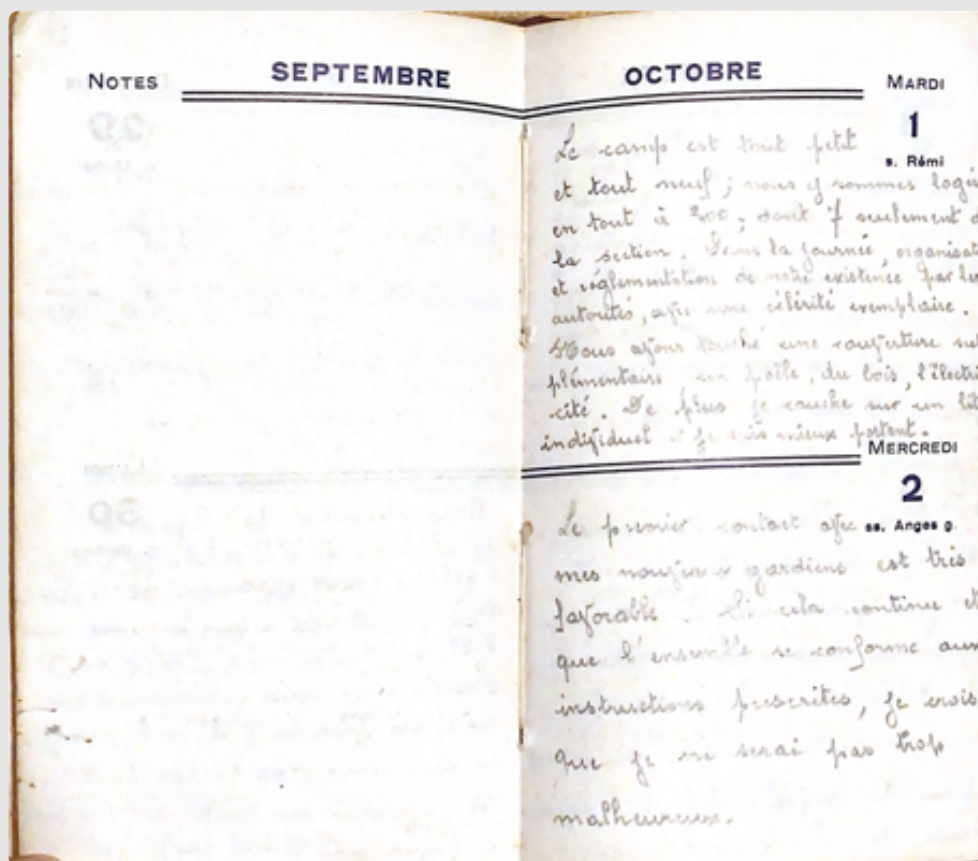 NOTES
SEPTEMBRE
OCTOBRE
MARDI
1
s. Rémi
Le camp est tout petit
et tout neuf ; nous y sommes logés
en tout à 200 ; dont 7 seulement
la section. Dans la journée, organisat
et réglementation de notre existence par les
autorités, avec une célérité exemplaire.
Nous avons touché une couverture sup
plémentaire, un poêle, du bois, l'électri
cité. De plus je couche sur un lit
individuel je suis mieux portent.
MERCREDI
2
ss. Anges g.
Le premier contact avec
mes nouveaux gardiens est très
favorable. Si cela continue et
que l'ensemble se conforme aux
instructions prescrites, je crois
que je ne serai pas trop
malheureux.